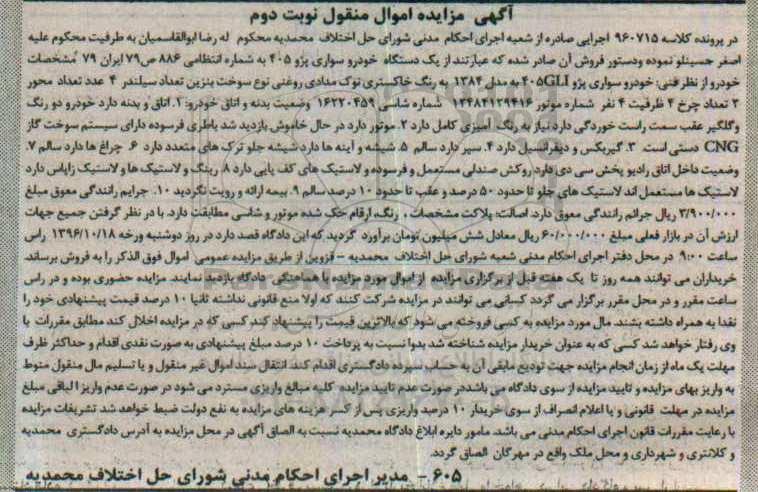 آگهی مزایده اموال منقول نوبت دوم
در پرونده کلاسه ۹۶۰۷۱۵ اجرایی صادره از شعبه اجرای احکام مدنی شورای حل اختلاف محمدیه محکوم له رضا ابوالقاسمیان به طرفیت محکوم علیه
اصغر حسینلو نموده ودستور فروش آن صادر شده که عبارتند از یک دستگاه خودرو سواری پژو ۴۰۵ به شماره انتظامی ۸۸۶ ص۷۹ ایران ۷۹ مشخصات
خودرو از نظر فنی: خودرو سواری پژو ۴۰۵GLI به مدل ۱۳۸۴ به رنگ خاکستری نوک مدادی روغنی نوع سوخت بنزین تعداد سیلندر ۴ عدد تعداد محور
۲ تعداد چرخ ۴ ظرفیت ۴ نفر شماره موتور ۱۲۴۸۴۱۲۹۴۱۶ شماره شاسی ۱۶۲۲۰۴۵۹ وضعیت بدنه و اتاق خودرو: ۱. اتاق و بدنه دارد خودرو دو رنگ
وگلگیر عقب سمت راست خوردگی دارد نیاز به رنگ آمیزی کامل دارد ۲. موتور دارد در حال خاموش بازدید شد باطری فرسوده دارای سیستم سوخت گاز
CNG دستی است. ۳. گیربکس و دیفرانسیل دارد ۴. سپر دارد سالم ۵. شیشه و آینه ها دارد شیشه جلو ترک های متعدد دارد ۶. چراغ ها دارد سالم ۷.
وضعیت داخل اتاق رادیو پخش سی دی دارد روکش صندلی مستعمل و فرسوده و لاستیک های کف پایی دارد ۸. رینگ و لاستیک ها و لاستیک زاپاس دارد
لاستیک ها مستعمل اند لاستیک های جلو تا حدود ۵۰ درصد و عقب تا حدود ۱۰ درصد سالم ۹. بیمه ارائه و رویت نگردید ۱۰. جرایم رانندگی معوق مبلغ
۳/۹۰۰/۰۰۰ ریال جرائم رانندگی معوق دارد. اصالت: پلاکت مشخصات ، رنگ، ارقام حک شده موتور و شاسی مطابقت دارد. با در نظر گرفتن جمیع جهات
ارزش آن در بازار فعلی مبلغ ۶۰/۰۰۰/۰۰۰ ریال معادل شش میلیون تومان برآورد گردید که این دادگاه قصد دارد در روز دوشنبه ورخه ۱۳۹۶/۱۰/۱۸ راس
ساعت ۹:۰۰ در محل دفتر اجرای احکام مدنی شعبه شورای حل اختلاف محمدیه - قزوین از طریق مزایده عمومی اموال فوق الذکر را به فروش برساند.
خریداران می توانند همه روز تا یک هفته قبل از برگزاری مزایده از اموال مورد مزایده با هماهنگی دادگاه بازدید نمایند. مزایده حضوری بوده و در راس
ساعت مقرر و در محل مقرر برگزار می گردد کسانی می توانند در مزایده شرکت کنند که اولا منع قانونی نداشته ثانیا ۱۰ درصد قیمت پیشنهادی خود را
نقدا به همراه داشته بتنند. مال مورد مزایده به کسی فروخته می شود که بالاترین قیمت را پیشنهاد کند کسی که در مزایده اخلال کند مطابق مقررات با
وی رفتار خواهد شد کسی که به عنوان خریدار مزایده شناخته شد بدوا نسبت به پرداخت ۱۰ درصد مبلغ پیشنهادی به صورت نقدی اقدام و حداکثر ظرف
مهلت یک ماه از زمان انجام مزایده جهت تودیع مابقی آن به حساب سپرده دادگستری اقدام کند انتقال سند اموال غیر منقول و یا تسلیم مال منقول منوط
به واریز بهای مزایده و تایید مزایده از سوی دادگاه می باشددر صورت عدم تایید مزایده کلیه مبالغ واریزی مسترد می شود در صورت عدم واریز ا الباقی مبلغ
مزایده در مهلت قانونی و یا اعلام انصراف از سوی خریدار ۱۰ درصد واریزی پس از کسر هزینه های مزایده به نفع دولت ضبط خواهد شد تشریفات مزایده
با رعایت مقررات قانون اجرای احکام مدنی می باشد. مامور دایره ابلاغ دادگاه محمدیه نسبت به الصاق آگهی در محل مزایده به آدرس دادگستری محمدیه
و کلانتری و شهرداری و محل ملک واقع در مهرگان الصاق گردد.
۶۰۵ - مدیر اجرای احکام مدنی شورای حل اختلاف محمدیه